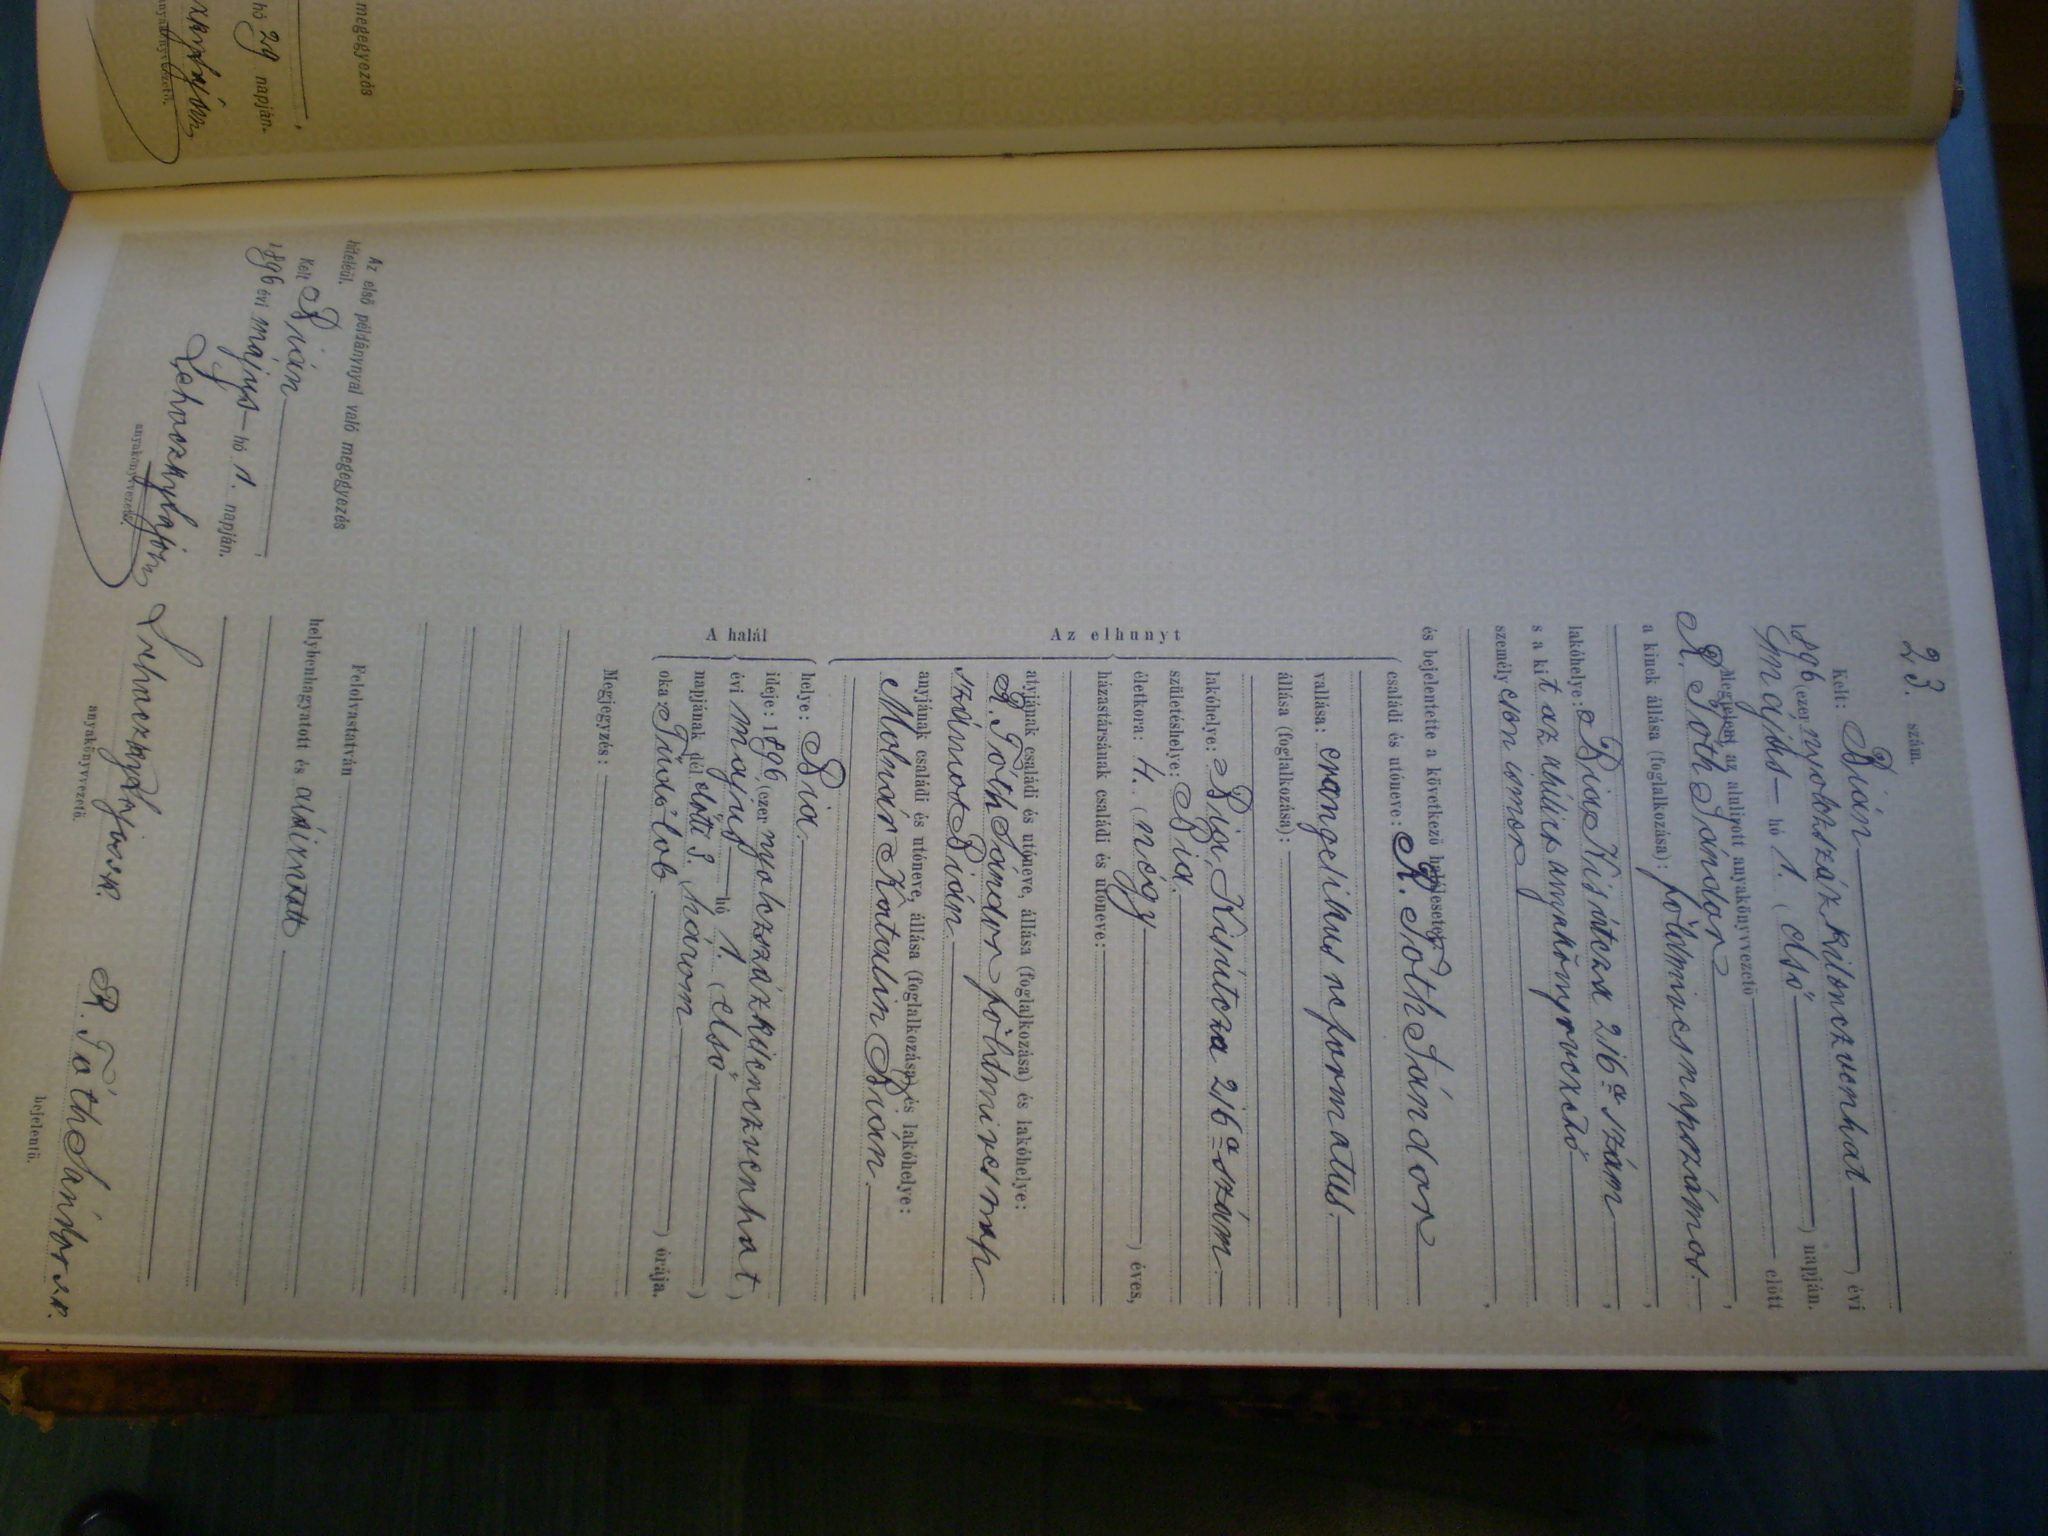 megegyezés
hó 29 napján.
anyakönyvvezető.
23. szám.
Kelt: Bián
1896 (ezer nyolczszázkilenczvenhat) évi
május hó 1. (első) napján.
Megjelent az alulírott anyakönyvvezető előtt
R. Tóth Sándor,
a kinek állása (foglalkozása): földmives napszámos,
lakóhelye: Bia Kisutcza 216ᵃ szám,
s a kit az alulirt anyakönyvvezető
személyesen ismer,
és bejelentette a következő halálesetet:
Az elhunyt
családi és utóneve: R. Tóth Sándor
vallása: evangelikus reformatus.
állása (foglalkozása):
lakóhelye: Bia, Kisútcza 216ᵃ szám.
születéshelye: Bia.
életkora: 4. (négy) éves,
házastársának családi és utóneve:
atyjának családi és utóneve, állása (foglalkozása) és lakóhelye:
R. Tóth Sándor földmives nap
számos Bián.
anyjának családi és utóneve, állása (foglalkozása) és lakóhelye:
Molnár Katalin Bián.
A halál
helye: Bia.
ideje: 1896 (ezer nyolczszázkilenczvenhat)
évi május hó 1. (első)
napjának dél előtti 3. (három) órája.
oka: Tüdőlob.
Megjegyzés:
Felolvastatván
helybenhagyatott és aláiratott.
anyakönyvvezető.
R. Tóth Sándor s.k.
bejelentő.
Az első példánynyal való megegyezés
hiteléül.
Kelt Bián,
1896 évi május hó 1. napján.
anyakönyvvezető.